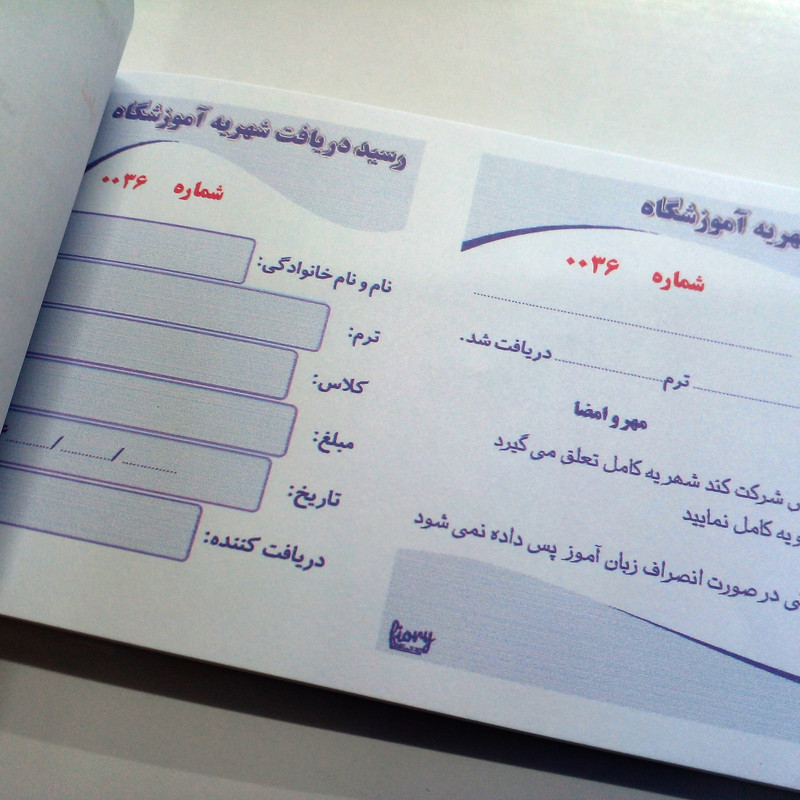 رسید دریافت شهریه آموزشگاه
شماره ۰۰۳۶
نام و نام خانوادگی:
ترم:
کلاس:
مبلغ:
تاریخ:
....../....../......
دریافت کننده:
شهریه آموزشگاه
شماره ۰۰۳۶
ترم دریافت شد.
مهر و امضا
شرکت کند شهریه کامل تعلق می گیرد
کامل نمایید
در صورت انصراف زبان آموز پس داده نمی شود
fiory